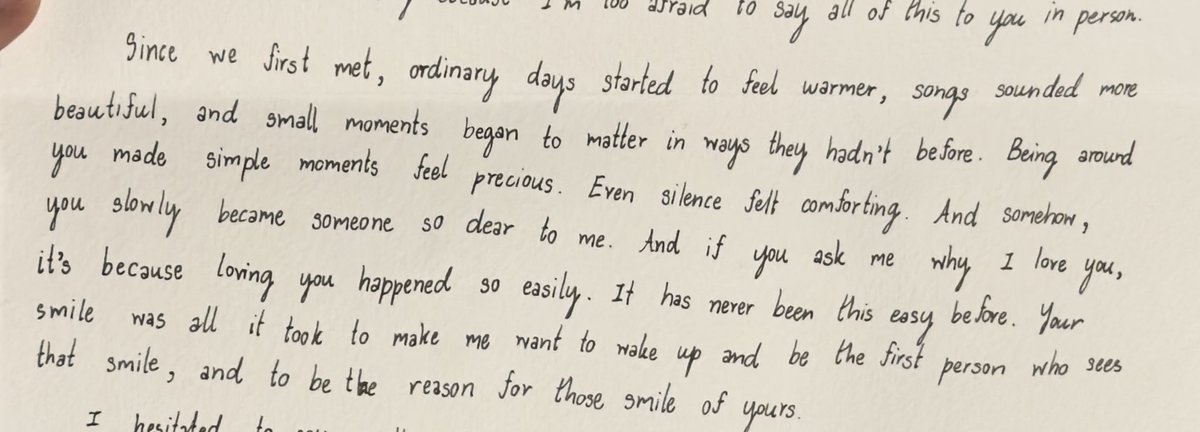 because I'm too afraid to say all of this to you in person.
Since we first met, ordinary days started to feel warmer, songs sounded more
beautiful, and small moments began to matter in ways they hadn't before. Being around
you made simple moments feel precious. Even silence felt comforting. And somehow,
you slowly became someone so dear to me. And if you ask me why I love you,
it's because loving you happened so easily. It has never been this easy before. Your
smile was all it took to make me want to wake up and be the first person who sees
that smile, and to be the reason for those smile of yours.
I hesitated to